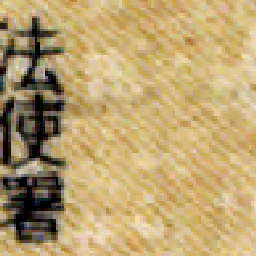 法使署